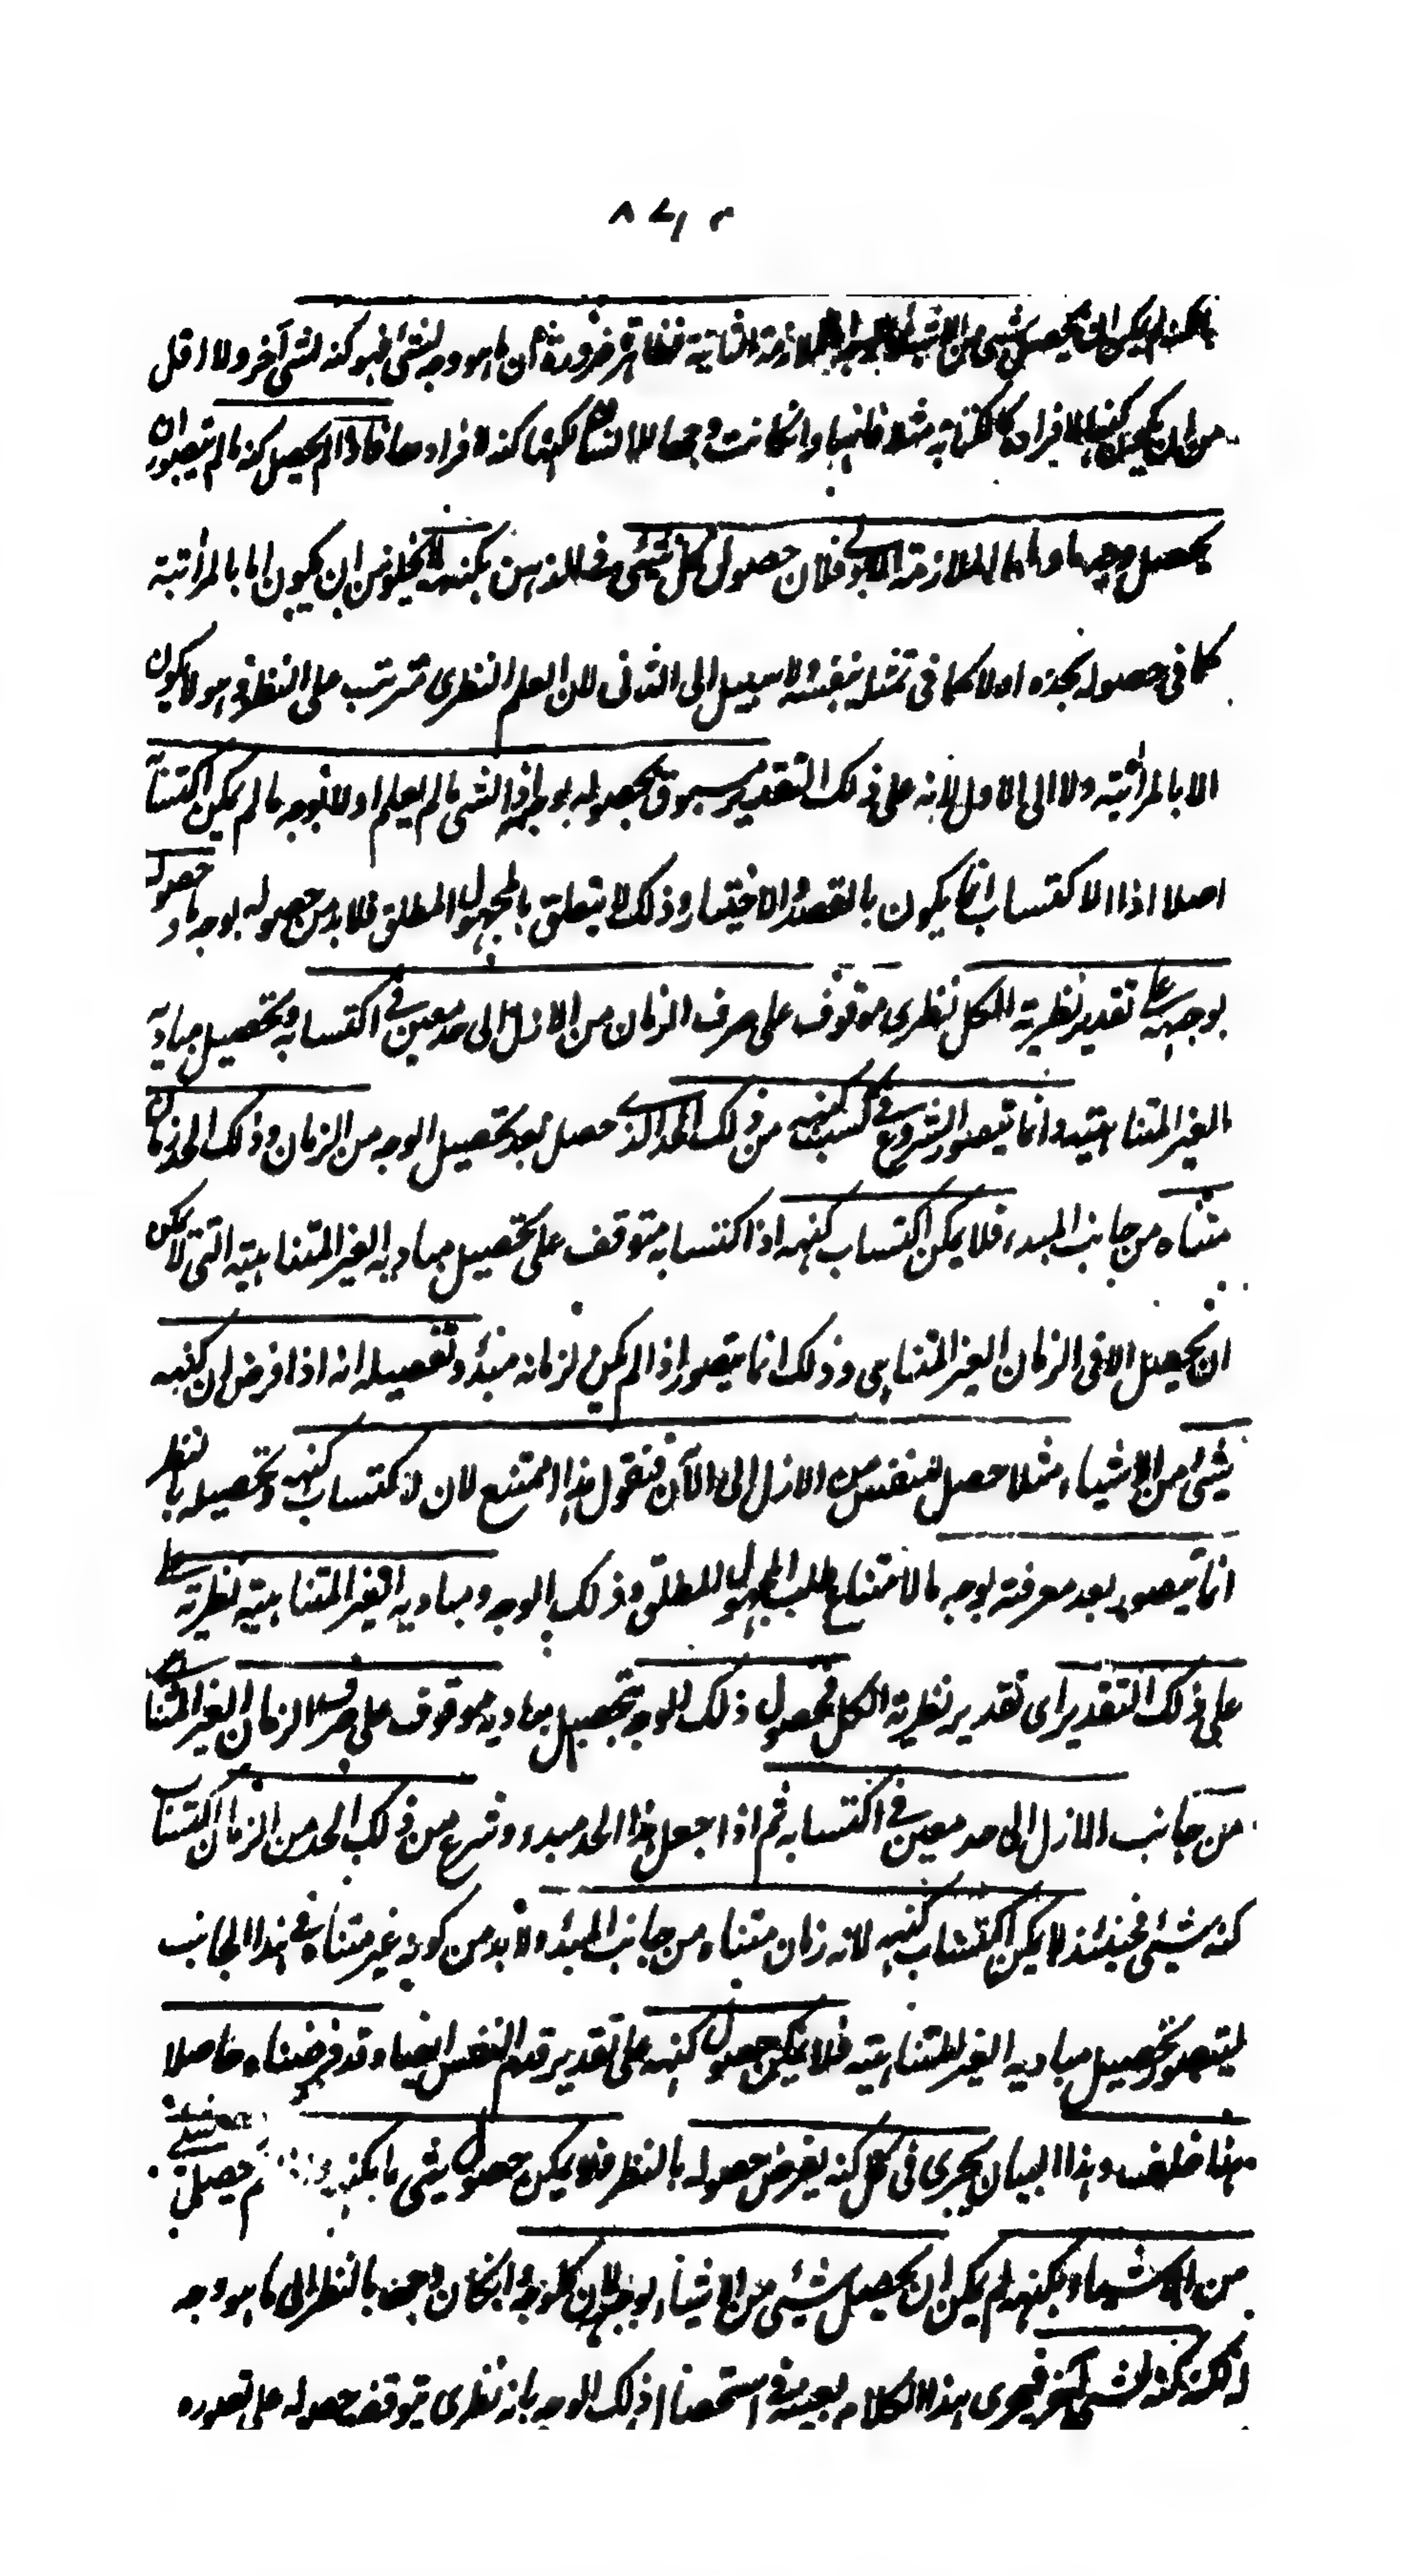 بالكنه لم يمكن ان يحصل شيء من الاشياء الملازمة الثانية فظاهرة ضرورة ان ما هو وجه لشئ فهو كنه لشئ آخر ولا اقل
من ان يكون كنها لافراده كالكتابة مثلا فانها وان كانت وجها للانسان لكنها كنه لافرادها فاذا لم يحصل كنه ما لم يتصور ان
يحصل وجه ما واما الملازمة الاولى فلان حصول كل شيئ في الذهن بكنهه لا يخلو من ان يكون اما بالمراتبة
كما في حصوله بحده او لا كما في تمثله بنفسه ولا سبيل الى الثاني لان العلم النظري مترتب على النظر وهو لا يكون
الا بالمراتبة ولا الى الاول لانه على ذلك التقدير مسبوق بحصوله بوجه اذ الشي ما لم يعلم اولا بوجه ما لم يمكن اكتسابه
اصلا اذ الاكتساب انما يكون بالقصد والاختيار وذلك لا يتعلق بالمجهول المطلق فلا بد من حصوله بوجه ما وحصوله
بوجه على تقدير نظرية الكل نظري موقوف على صرف الزمان من الازل الى حد معين في اكتسابه وتحصيل مباديه
الغير المتناهية وانما يتصور الشروع في كسب كنهه من ذلك الحد الذي حصل بعد تحصيل الوجه من الزمان وذلك الحد زمان
متناه من جانب المبدء فلا يمكن اكتساب كنهه اذ اكتسابه متوقف على تحصيل مباديه الغير المتناهية التي لا يمكن
ان يحصل الا في الزمان الغير المتناهي وذلك انما يتصور اذا لم يكن لزمانه مبدء وتفصيله انه اذا فرض ان كنه
شيئ من الاشياء مثلا حصل للنفس من الازل الى الآن فنقول هذا ممتنع لان اكتساب كنهه وتحصيله بالنظر
انما يتصور بعد معرفته بوجه ما لامتناع طلب المجهول المطلق وذلك الوجه ومباديه الغير المتناهية نظرية
على ذلك التقدير اى تقدير نظرية الكل فحصول ذلك الوجه بتحصيل مباديه موقوف على صرف الزمان الغير المتناهي
من جانب الازل الى حد معين في اكتسابه ثم اذا جعل هذا الحد مبدء وشرع من ذلك الحد من الزمان اكتساب
كنه شيئ فحينئذ لا يمكن اكتساب كنهه لانه زمان متناه من جانب المبدء ولا بد من كونه غير متناه في هذا الجانب
ليتصور تحصيل مباديه الغير المتناهية فلا يمكن حصول كنهه على تقدير قدم النفس ايضا وقد فرضناه حاصلا
هذا خلف وهذا البيان يجري في كل كنه يفرض حصوله بالنظر فلا يمكن حصول شيئ ما بكنهه لم يحصل
من الاشياء بكنهه لم يمكن ان يحصل شيئ من الاشياء بوجه لان كل وجه وان كان وجها بالنظر الى ما هو وجه
له لكنه كنه لشئ آخر فيجري هذا الكلام بعينه في استحصال ذلك الوجه بانه نظري يتوقف حصوله على تصوره